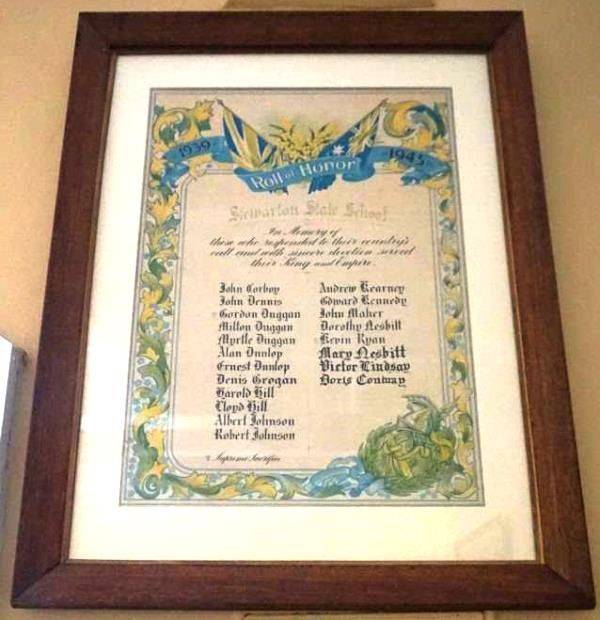 1939
1945
Roll of Honor
Stewarton State School
In Memory of
those who responded to their country's
call and with sincere devotion served
their King and Empire.
John Corboy
John Dennis
Gordon Duggan
Milton Duggan
Myrtle Duggan
Alan Dunlop
Ernest Dunlop
Denis Grogan
Harold Hill
Lloyd Hill
Albert Johnson
Robert Johnson
Andrew Kearney
Edward Kennedy
John Maher
Dorothy Nesbitt
Kevin Ryan
Mary Nesbitt
Victor Lindsay
Doris Conway
Supreme Sacrifice